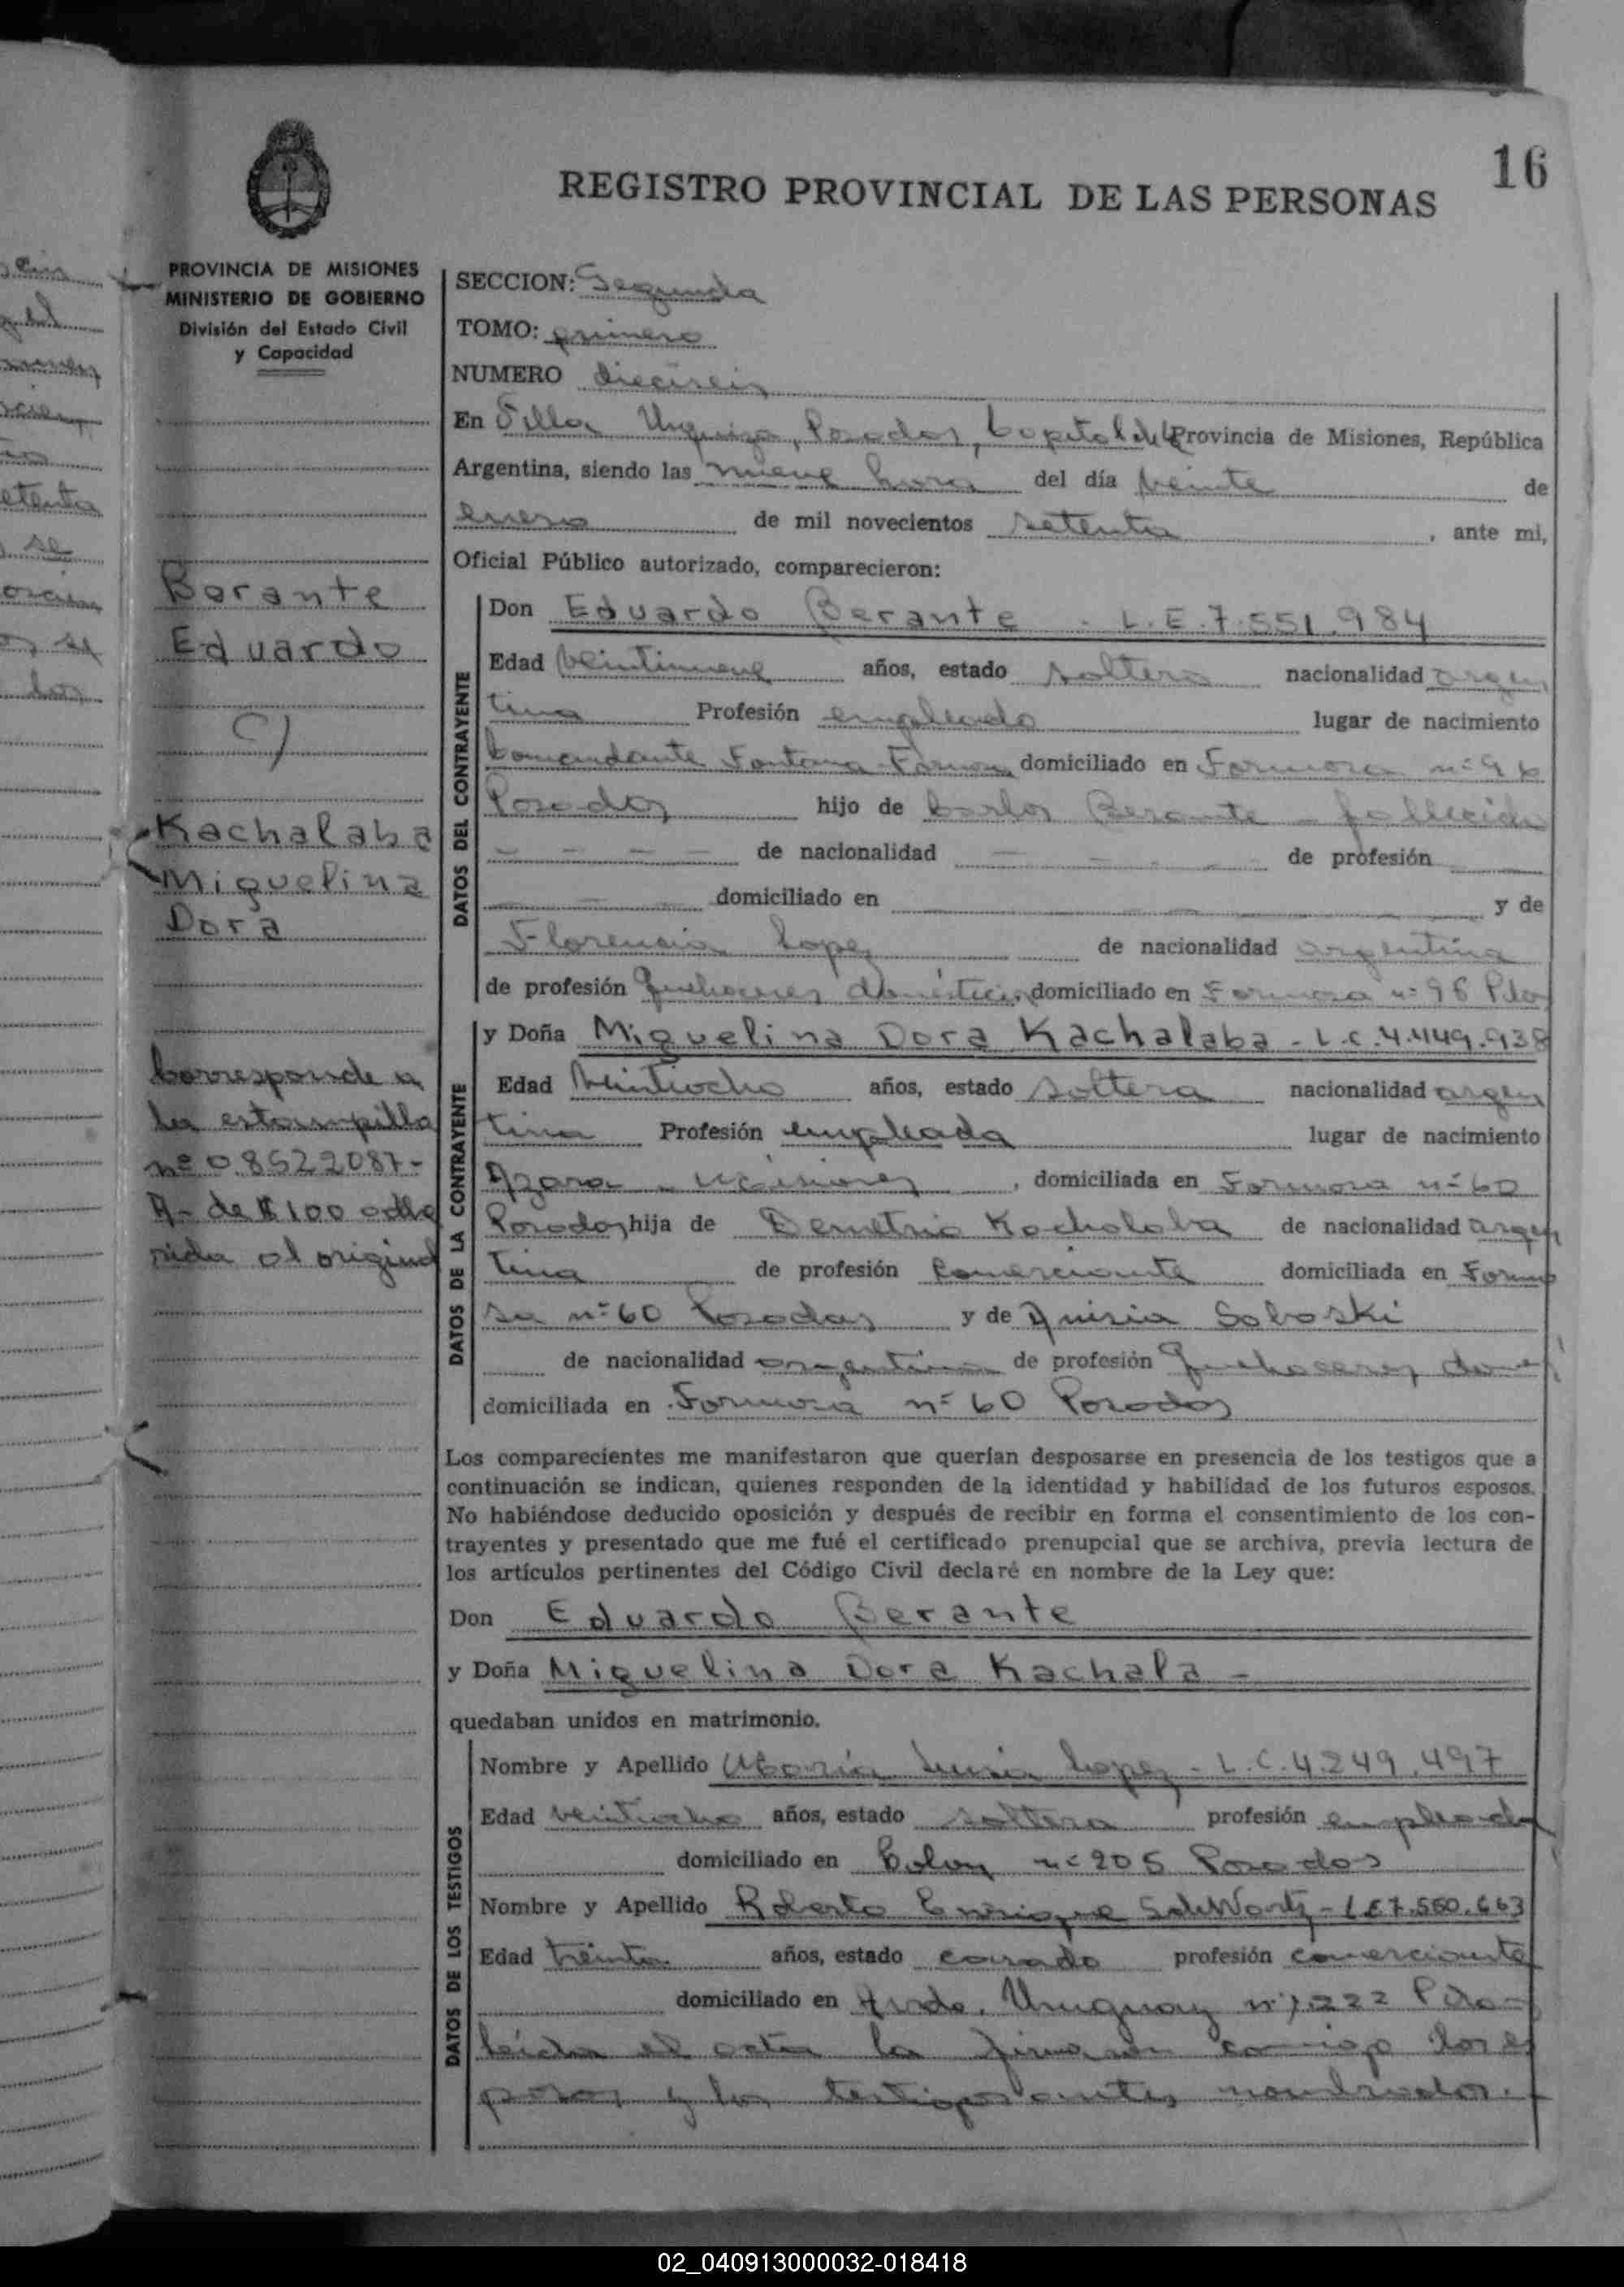 16
REGISTRO PROVINCIAL DE LAS PERSONAS
PROVINCIA DE MISIONES
MINISTERIO DE GOBIERNO
División del Estado Civil
y Capacidad
Berante
Eduardo
c/
Kachalaba
Miguelina
Dora
Corresponde a
la estampilla
nº 08522087-
A- de $ 100 adhe
rida al original
SECCION: Segunda
TOMO: primero
NUMERO dieciseis
En Villa Urquiza, Posadas, Capital de la Provincia de Misiones, República
Argentina, siendo las nueve horas del día veinte de
enero de mil novecientos setenta, ante mi,
Oficial Público autorizado, comparecieron:
DATOS DEL CONTRAYENTE
Don Eduardo Berante - L.E. 7.551.984
Edad veintinueve años, estado soltero nacionalidad argen
tina Profesión empleado lugar de nacimiento
Comandante Fontana Formosa domiciliado en Formosa nº 96
Posadas hijo de Carlos Berante - fallecido
- - - - de nacionalidad - - - de profesión
- - - domiciliado en - - - y de
Florencia Lopez de nacionalidad argentina
de profesión Quehaceres domésticos, domiciliado en Formosa nº 96 Pdas
DATOS DE LA CONTRAYENTE
y Doña Miguelina Dora Kachalaba - L.C. 4.449.938
Edad Veintiocho años, estado soltera nacionalidad argen
tina Profesión empleada lugar de nacimiento
Azara - Misiones, domiciliada en Formosa nº 60
Posadas hija de Demetrio Kachalaba de nacionalidad argen
tina de profesión Comerciante domiciliada en Formo
sa nº 60 Posadas y de Anisia Saboski
de nacionalidad argentina de profesión Quehaceres
domiciliada en Formosa nº 60 Posadas
Los comparecientes me manifestaron que querían desposarse en presencia de los testigos que a
continuación se indican, quienes responden de la identidad y habilidad de los futuros esposos.
No habiéndose deducido oposición y después de recibir en forma el consentimiento de los con-
trayentes y presentado que me fué el certificado prenupcial que se archiva, previa lectura de
los artículos pertinentes del Código Civil declaré en nombre de la Ley que:
Don Eduardo Berante
y Doña Miguelina Dora Kachala -
quedaban unidos en matrimonio.
DATOS DE LOS TESTIGOS
Nombre y Apellido María Luisa Lopez - L.C. 4.249.497
Edad veintiocho años, estado soltera profesión empleada
domiciliado en Colon nº 205 Posadas
Nombre y Apellido Roberto Enrique - L.E. 7.550.663
Edad treinta años, estado casado profesión comerciante
domiciliado en Avda. Uruguay nº 1.222 Pdas-
leída el acta la firman conmigo los es
posos y los testigos antes nombrados.
02_040913000032-018418